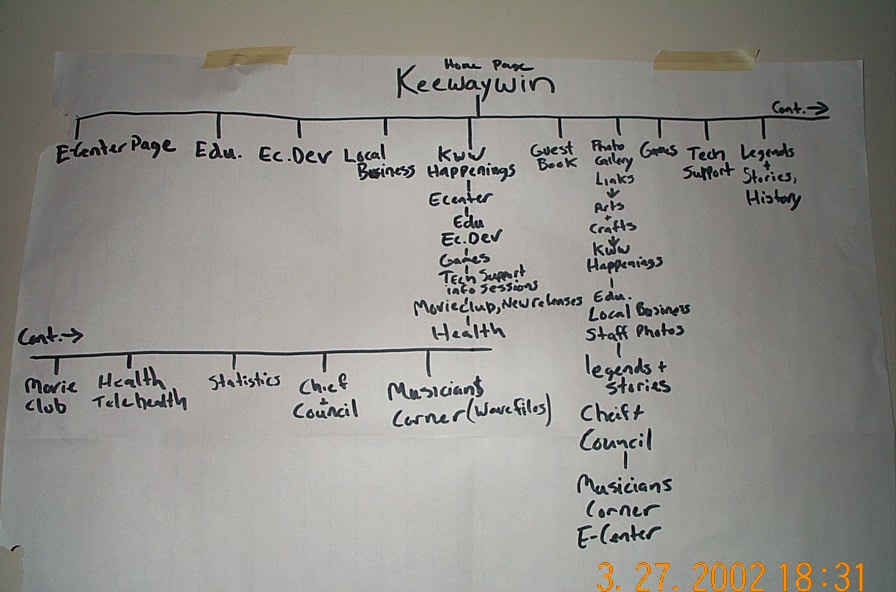 Home Page
Keewaywin
Cont.→
E-Center Page
Edu.
Ec.Dev
Local
Business
Kww
Happenings
Ecenter
Edu
Ec.Dev
Games
Tech Support
info sessions
Movieclub, New releases
Health
Guest
Book
Photo
Gallery
Links
Arts
+
Crafts
Kww
Happenings
Edu.
Local Business
Staff Photos
legends +
stories
Cheif +
Council
Musicians
Corner
E-Center
Games
Tech
Support
Legends
+
Stories,
History
Cont.→
Movie
Club
Health
Telehealth
Statistics
Chief
+
Council
Musicians
Corner (Wave files)
3. 27. 2002 18:31